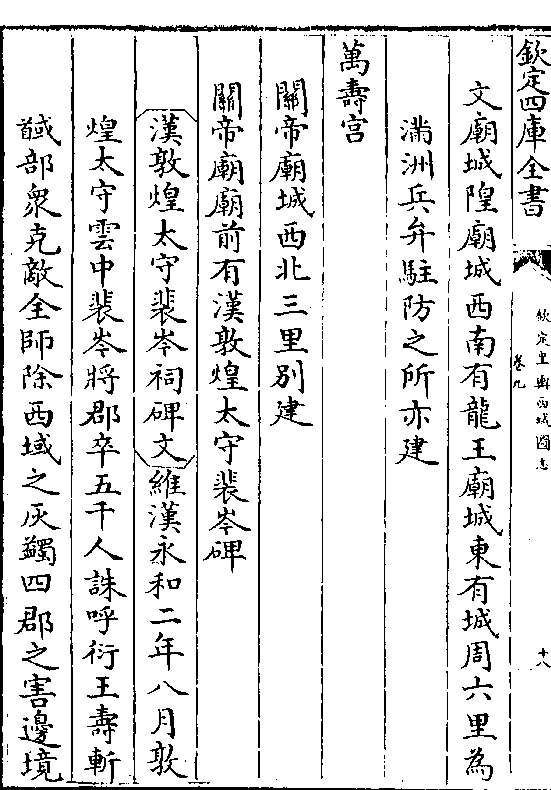 欽定四庫全書
欽定皇輿西域圖志
卷九
十八
文廟城隍廟城西南有龍王廟城東有城周六里為
滿洲兵弁駐防之所亦建
萬壽宮
關帝廟城西北三里別建
關帝廟廟前有漢敦煌太守裴岑碑
漢敦煌太守裴岑祠碑文維漢永和二年八月敦
煌太守雲中裴岑將郡卒五千人誅呼衍王壽斬
馘部衆克敵全師除西域之灰蠲四郡之害邊境